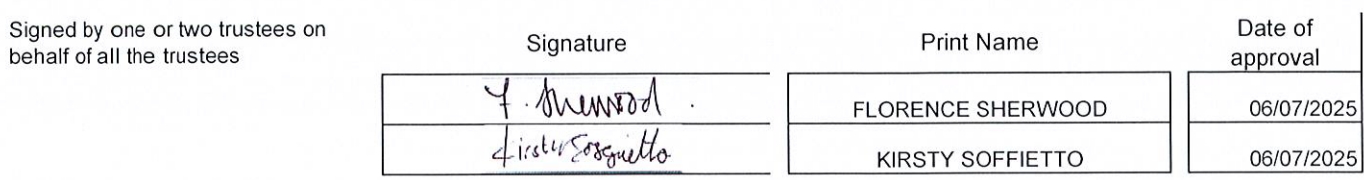 Signed by one or two trustees on
behalf of all the trustees
Signature
Print Name
Date of
approval
F. Sherwood.
FLORENCE SHERWOOD
06/07/2025
Kirsty Soffietto
KIRSTY SOFFIETTO
06/07/2025